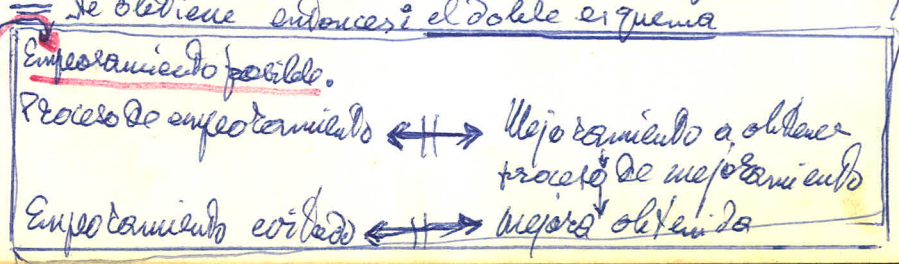 = Se obtiene entonces el doble esquema
Empeoramiento posible.
Proceso de empeoramiento ↔ Mejoramiento a obtener
proceso de mejoramiento
Empeoramiento evitado ↔ mejora obtenida